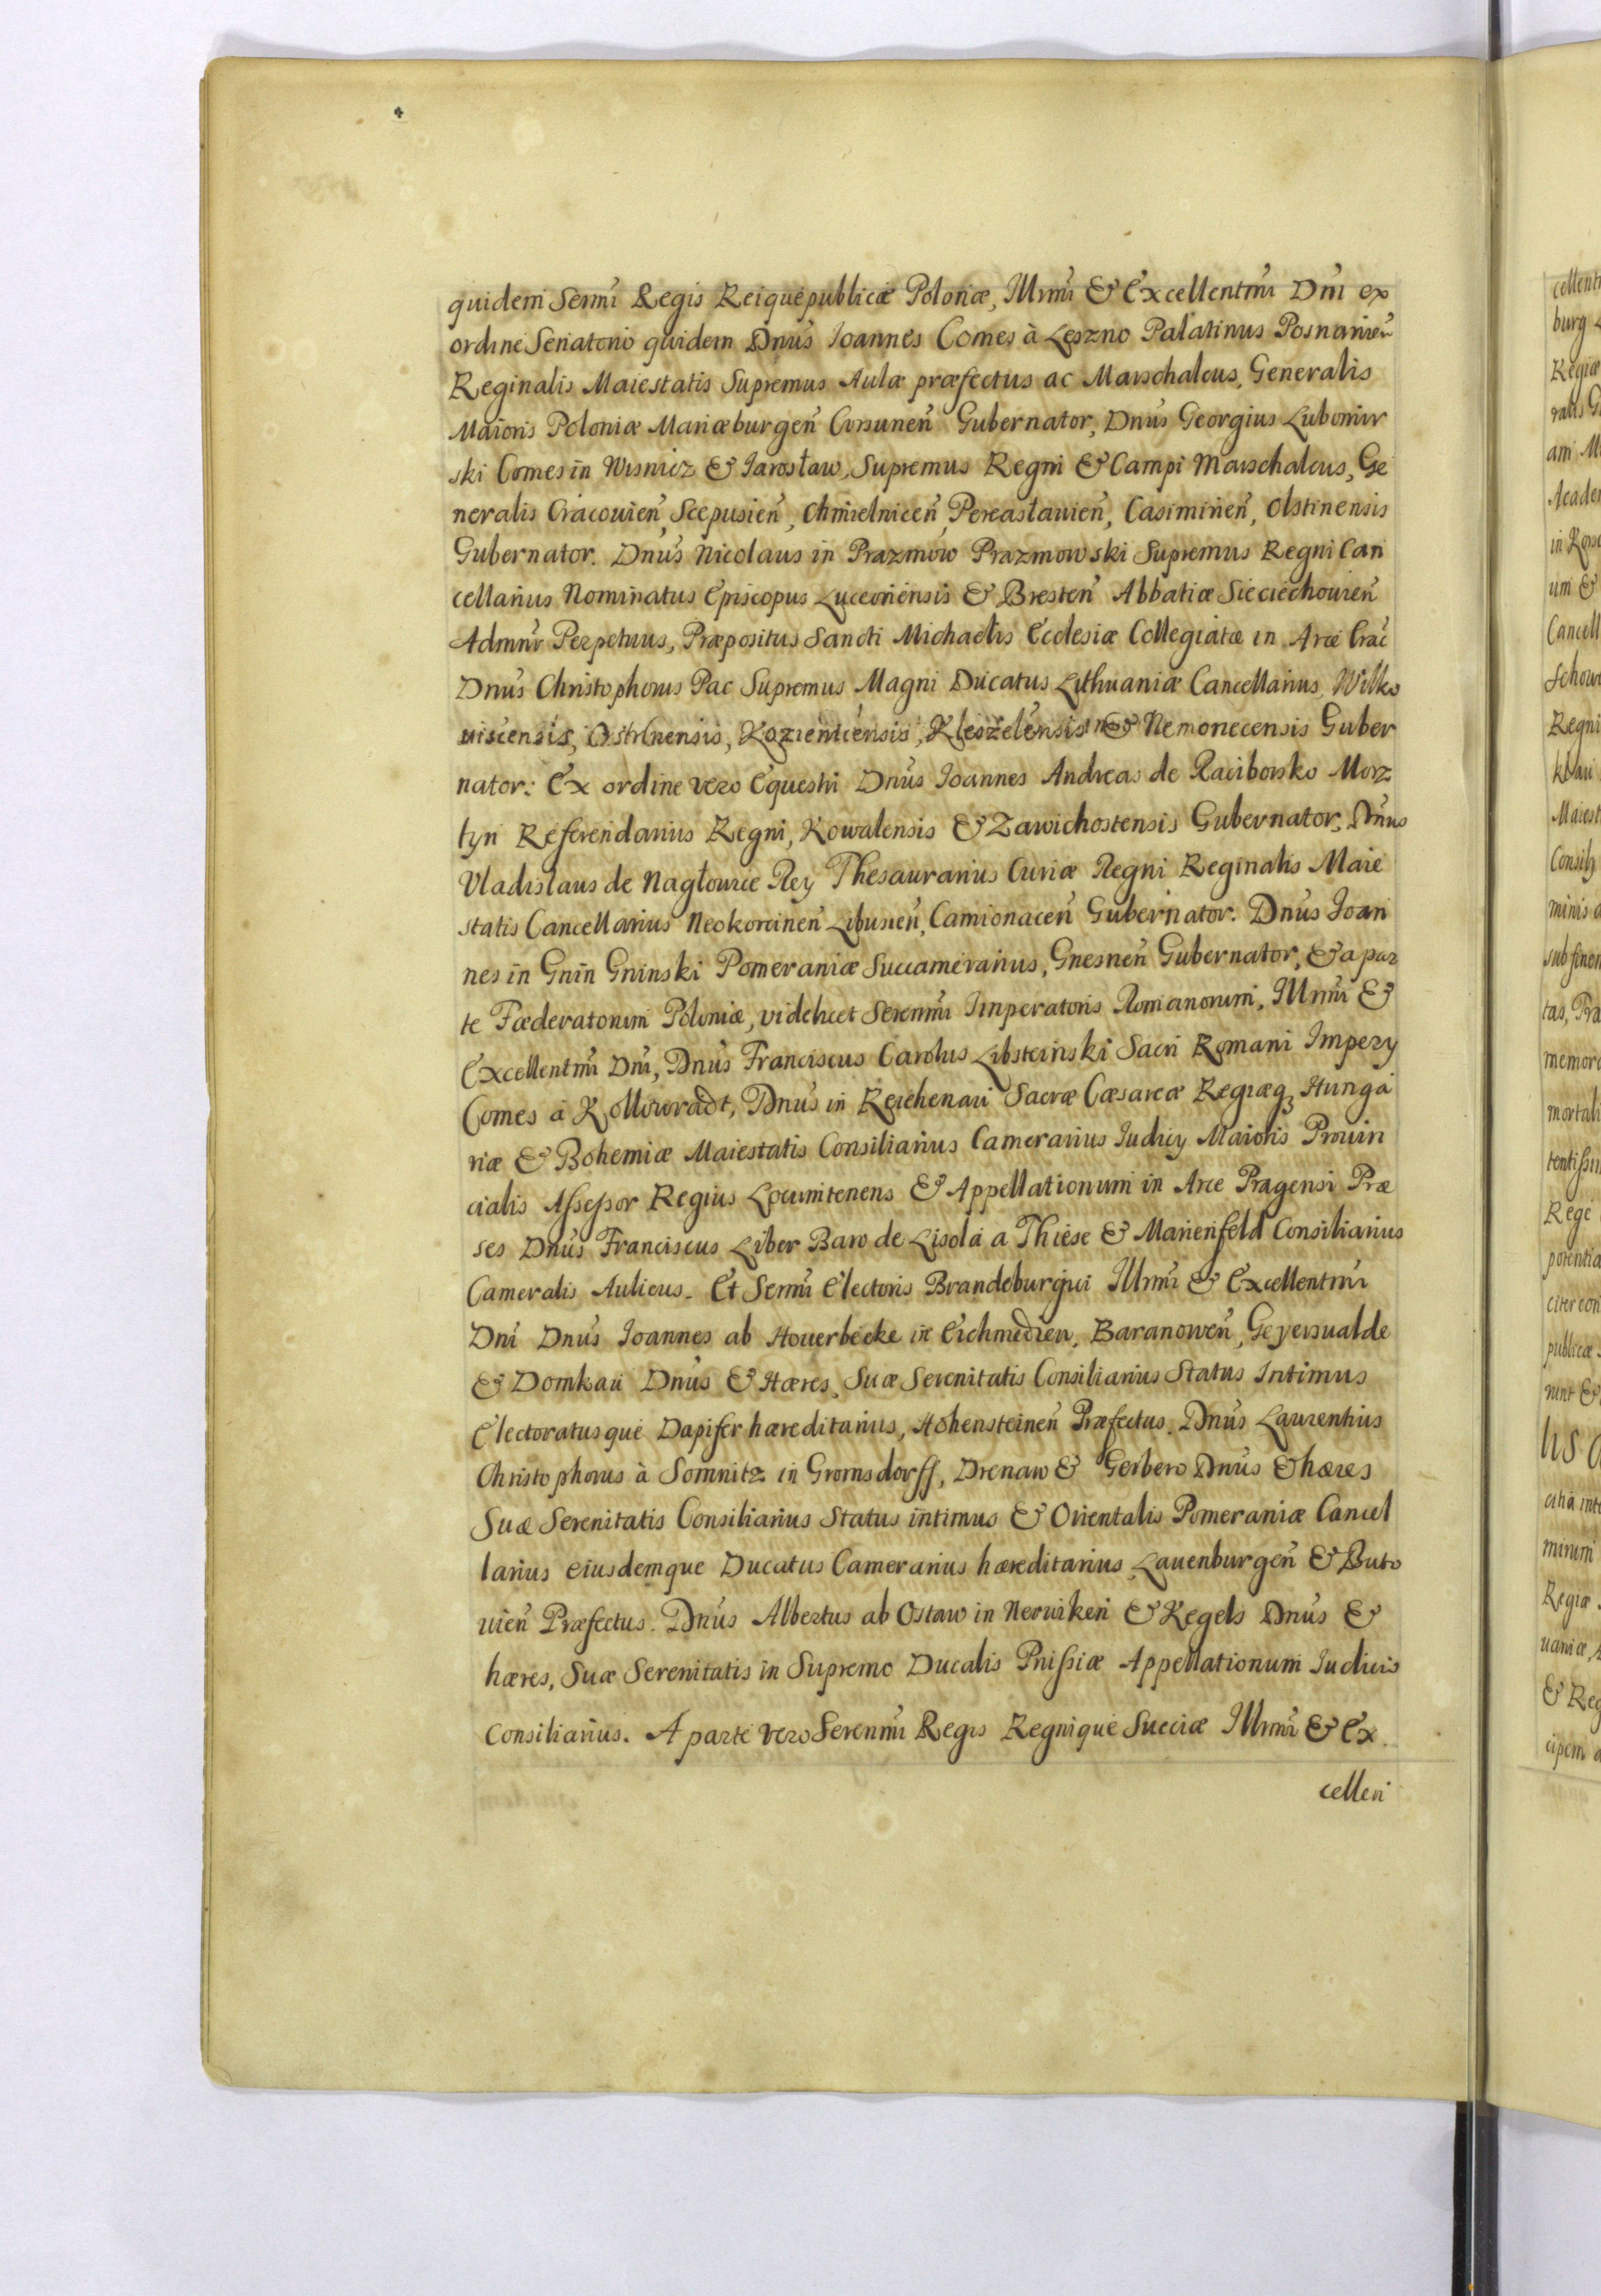 quidem Sermi Regis Reiquepublicæ Poloniæ, Illrmi & Excellentmi Dni ex
ordine Senatorio quidem Dnus Ioannes Comes à Leszno Palatinus Posnanien
Reginalis Maiestatis Supremus Aulæ præfectus ac Marschalcus, Generalis
Maioris Poloniæ Mariæburgen Corsunen Gubernator, Dnus Georgius Lubomir
ski Comes in Wisnicz & Iarosław, Supremus Regni & Campi Marschalcus, Ge
neralis Cracouien, Scepusien, Chmielnicen, Pereaslauien, Casimirien, Olstinensis
Gubernator. Dnus Nicolaus in Prazmow Prazmowski Supremus Regni Can
cellarius Nominatus Episcopus Luceoriensis & Bresten Abbatiæ Sieciechouien
Admnr Perpetuus, Præpositus Sancti Michaelis Ecclesiæ Collegiatæ in Arce Crac
Dnus Christophorus Pac Supremus Magni Ducatus Lithuaniæ Cancellarius, Wilko
uiscensis, Kozienicensis, Kleszelensis & Nemonecensis Guber
nator: Ex ordine vero Equestri Dnus Ioannes Andreas de Raciborsko Morz
tyn Referendarius Regni, Kowalensis & Zawichostensis Gubernator, Dnus
Vladislaus de Nagłowice Rey Thesaurarius Curiæ Regni Reginalis Maie
statis Cancellarius Neokorcinen Libusien, Camionacen Gubernator. Dnus Ioan
nes in Gnin Gninski Pomeraniæ Succamerarius, Gnesnen Gubernator, & a par
te Fœderatorum Poloniæ, videlicet Serenmi Imperatoris Romanorum, Illrmi &
Excellentmi Dni, Dnus Franciscus Carolus Libsteinski Sacri Romani Impery
Comes à Kollowradt, Dnus in Reichenau Sacræ Cæsareæ Regiæq3 Hunga
riæ & Bohemiæ Maiestatis Consiliarius Camerarius Iudicy Maioris Prouin
cialis Assessor Regius Locumtenens & Appellationum in Arce Pragensi Præ
ses Dnus Franciscus Liber Baro de Lisola a Thiese & Marienfeld Consiliarius
Cameralis Aulicus. Et Sermi Electoris Brandeburgici Illrmi & Excellentmi
Dni Dnus Ioannes ab Houerbecke in Eichmedien, Baranowen, Geyersualde
& Domkau Dnus & Hæres, Suæ Serenitatis Consiliarius Status Intimus
Electoratusque Dapifer hæreditarius, Hohensteinen Præfectus. Dnus Laurentius
Christophorus à Somnitz in Gromsdorff, Drenaw & Gerbero Dnus & hæres
Suæ Serenitatis Consiliarius Status intimus & Orientalis Pomeraniæ Cancel
larius eiusdemque Ducatus Camerarius hæreditarius Lauenburgen & Buto
uien Præfectus. Dnus Albertus ab Ostaw in & Kegels Dnus &
hæres, Suæ Serenitatis in Supremo Ducalis Prussiæ Appellationum Iudicio
Consiliarius. A parte vero Serenmi Regis Regnique Sueciæ Illrmi & Ex
cellen